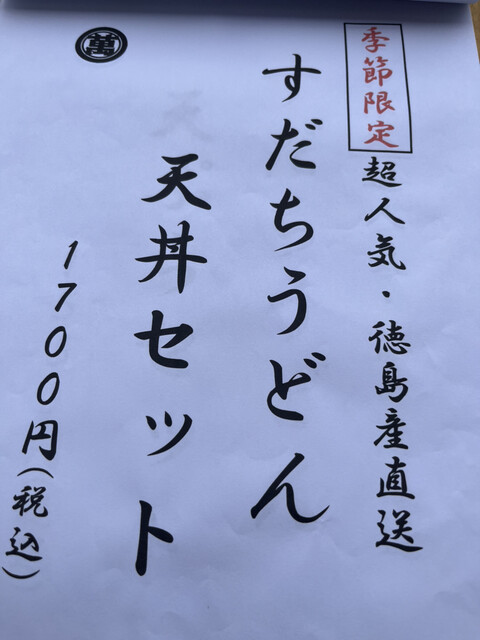 季節限定
超人気・徳島産直送
すだちうどん
天丼セット
1700円(税込)
萬